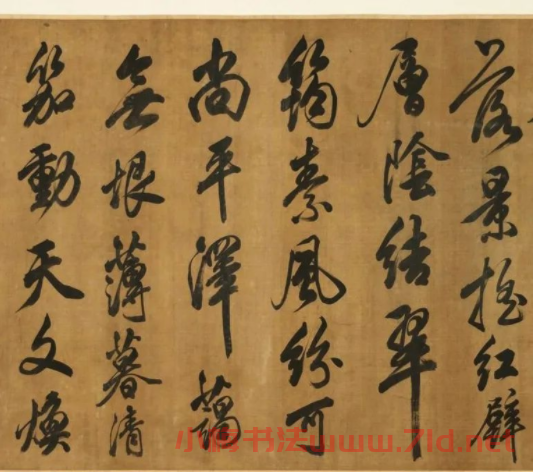 落景摇紅壁
層陰結翠
筠素風紛可
尚平澤藹
無垠薄暮清
笳動天文煥
小楷书法www.7ld.net